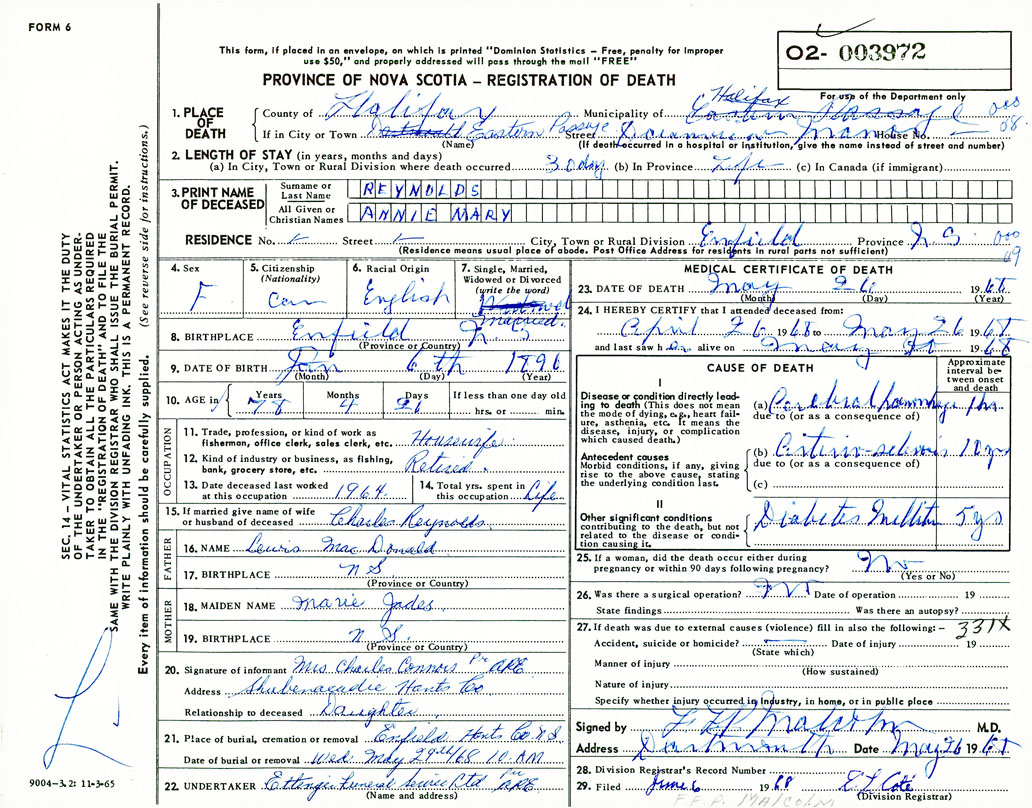 FORM 6
This form, if placed in an envelope, on which is printed "Dominion Statistics – Free, penalty for improper
use $50," and properly addressed will pass through the mail "FREE"
O2- 003972
For use of the Department only
PROVINCE OF NOVA SCOTIA – REGISTRATION OF DEATH
1. PLACE OF DEATH
County of Halifax Municipality of Halifax Eastern Passage 000
If in City or Town Eastern Passage Street Manor House No. 08
(Name) (If death occurred in a hospital or institution, give the name instead of street and number)
2. LENGTH OF STAY (in years, months and days)
(a) In City, Town or Rural Division where death occurred 30 day (b) In Province Life (c) In Canada (if immigrant)
3. PRINT NAME OF DECEASED
Surname or Last Name REYNOLDS
All Given or Christian Names ANNIE MARY
RESIDENCE No. Street City, Town or Rural Division Enfield Province N.S. 000
(Residence means usual place of abode. Post Office Address for residents in rural parts not sufficient) 69
4. Sex F.
5. Citizenship (Nationality) Can
6. Racial Origin English
7. Single, Married, Widowed or Divorced (write the word) Widowed Married.
8. BIRTHPLACE Enfield N.S
(Province or Country)
9. DATE OF BIRTH Jan 6th 1896
(Month) (Day) (Year)
10. AGE in Years 78 Months 4 Days 26 If less than one day old
hrs. or min.
OCCUPATION
11. Trade, profession, or kind of work as
fisherman, office clerk, sales clerk, etc. Housewife.
12. Kind of industry or business, as fishing,
bank, grocery store, etc. Retired.
13. Date deceased last worked
at this occupation 1964.
14. Total yrs. spent in
this occupation Life.
15. If married give name of wife
or husband of deceased Charles Reynolds.
FATHER
16. NAME Lewis Mac Donald.
17. BIRTHPLACE N S.
(Province or Country)
MOTHER
18. MAIDEN NAME Marie Jades.
19. BIRTHPLACE N S.
(Province or Country)
20. Signature of informant Mrs Charles Connors Pr ARE
Address Shubenacadie Hants Co
Relationship to deceased Daughter.
21. Place of burial, cremation or removal Enfield Hants Co N S
Date of burial or removal Wed. May 29th/68 10. AM
22. UNDERTAKER Ettinger Funeral Service Ltd Pr ARE
(Name and address)
MEDICAL CERTIFICATE OF DEATH
23. DATE OF DEATH May 26 1968
(Month) (Day) (Year)
24. I HEREBY CERTIFY that I attended deceased from:
April 26 1968 to May 26 1968
and last saw her alive on May 1968
CAUSE OF DEATH
Approximate interval between onset and death
I
Disease or condition directly leading to death (This does not
mean the mode of dying, e.g., heart failure, asthenia, etc. It means the
disease, injury, or complication
which caused death.)
(a) Cerebral haemorrhage 1 hr.
due to (or as a consequence of)
Antecedent causes
Morbid conditions, if any, giving
rise to the above cause, stating
the underlying condition last.
(b) 10 yrs
due to (or as a consequence of)
(c)
II
Other significant conditions
contributing to the death, but not
related to the disease or condition causing it.
Diabetes Mellitus 5 yrs
25. If a woman, did the death occur either during
pregnancy or within 90 days following pregnancy? No
(Yes or No)
26. Was there a surgical operation? No Date of operation 19
State findings Was there an autopsy?
27. If death was due to external causes (violence) fill in also the following: – 331X
Accident, suicide or homicide? Date of injury 19
(State which)
Manner of injury
(How sustained)
Nature of injury
Specify whether injury occurred in Industry, in home, or in public place
Signed by F F P Malcolm M.D.
Address Dartmouth Date May 26 1968
28. Division Registrar's Record Number
29. Filed June 6 1968 E. L. Coté
(Division Registrar)
F.F.P. MALCOLM
SEC. 14 – VITAL STATISTICS ACT MAKES IT THE DUTY
OF THE UNDERTAKER OR PERSON ACTING AS UNDER-
TAKER TO OBTAIN ALL THE PARTICULARS REQUIRED
IN THE "REGISTRATION OF DEATH" AND TO FILE THE
SAME WITH THE DIVISION REGISTRAR WHO SHALL ISSUE THE BURIAL PERMIT.
WRITE PLAINLY WITH UNFADING INK. THIS IS A PERMANENT RECORD.
Every item of information should be carefully supplied. (See reverse side for instructions.)
9004–3.2: 11-3-65